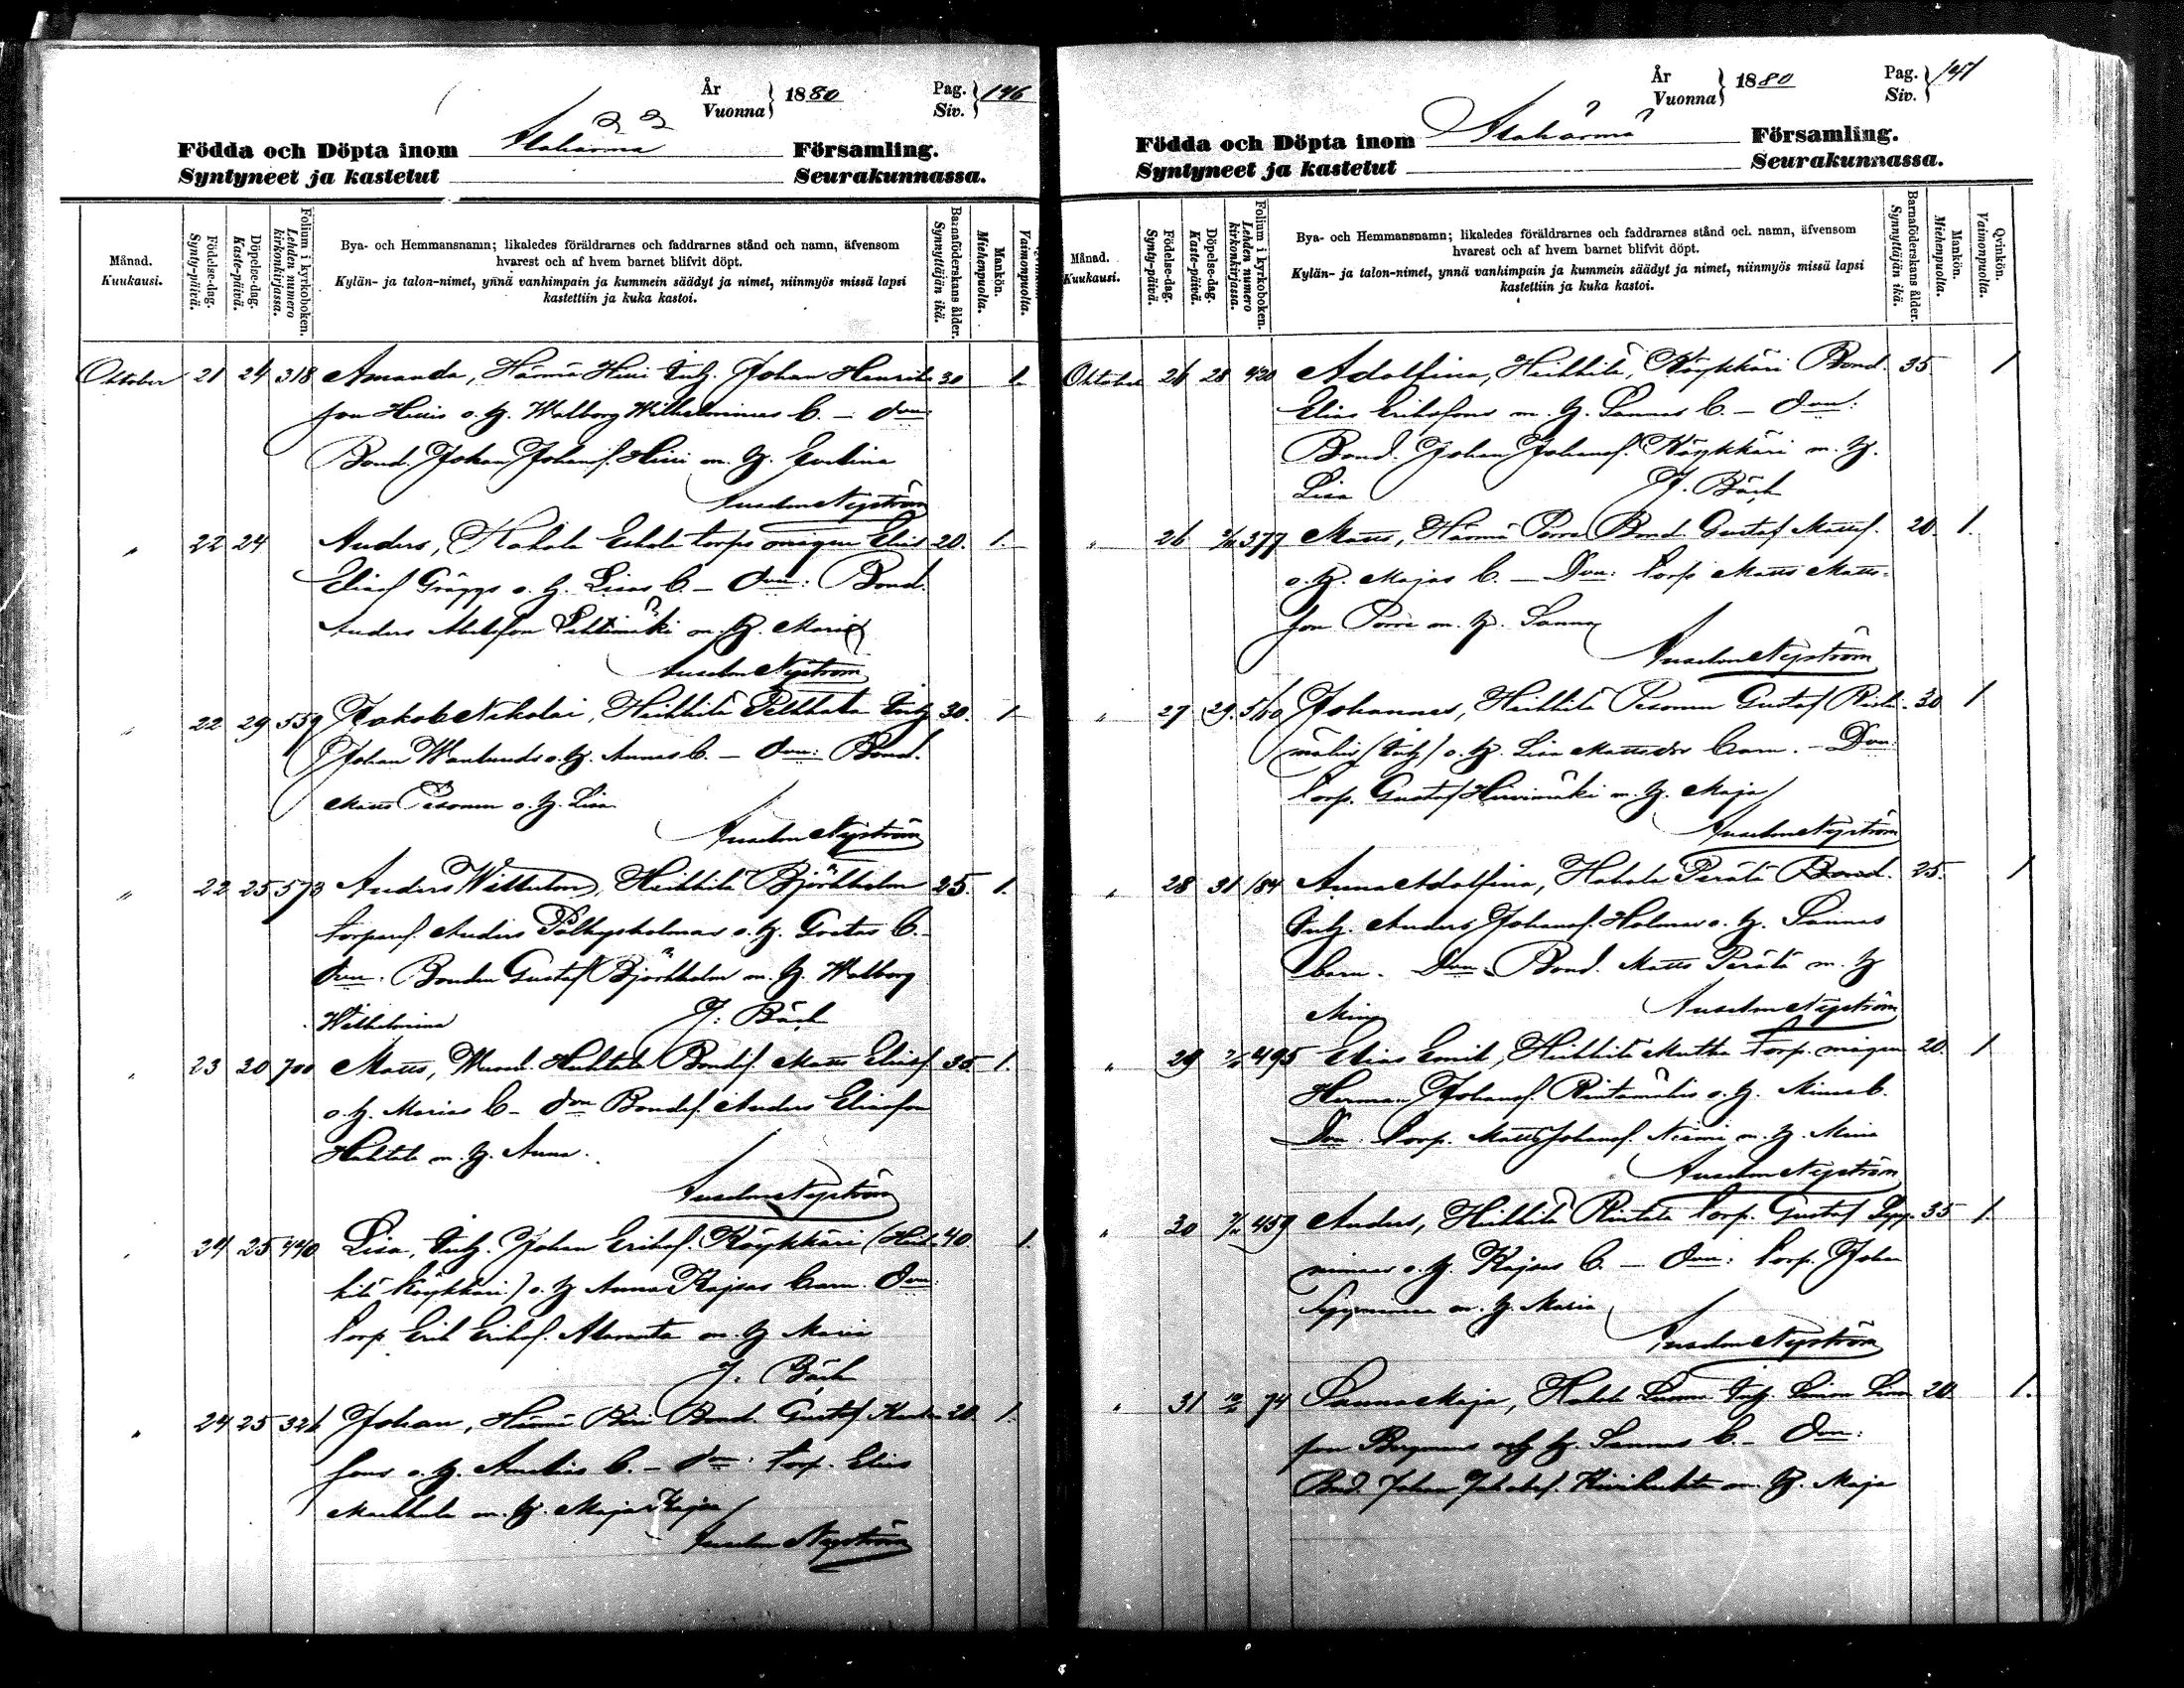 År
Vuonna } 1880
Pag.
Siv. } 146
Födda och Döpta inom Alahärmä Församling.
Syntyneet ja kastetut Seurakunnassa.
Månad.
Kuukausi.
Födelse-dag.
Synty-päivä.
Döpelse-dag.
Kaste-päivä.
Folium i kyrkoboken.
Lehden numero
kirkonkirjassa.
Bya- och Hemmansnamn; likaledes föräldrarnes och faddrarnes stånd och namn, äfvensom
hvarest och af hvem barnet blifvit döpt.
Kylän- ja talon-nimet, ynnä vanhimpain ja kummein säädyt ja nimet, niinmyös missä lapsi
kastettiin ja kuka kastoi.
Barnaföderskans ålder.
Synnyttäjän ikä.
Mankön.
Miehenpuolta.
Vaimonpuolta.
Oktober 21 24 318 Amanda, Härmä Hiiri Inh. Johan Henrik 30 1
son Hiiris o. h. Walborg Wilhelminas b. – dvn:
Bond. Johan Johans. Hiiri m. h. Evelina
Anselm Nyström
" 22 24 Anders, Hakola Eskola torps mågen Elias 20. 1.
Eliasf Gräggs o. h. Lisas b. – dvn: Bond.
Anders Abelsson Lehtimäki m. h. Maria
Anselm Nyström
" 22 29 559 Jakob Nikolai, Heikkilä Pelkkala Inh 30. 1
Johan Wanlunds o. h. Annas b. – dvn: Bond.
Matts Pesonen o. h. Lisa
Anselm Nyström
" 22 25 573 Anders Wilhelm, Heikkilä Björkholm 25. 1.
Anders o. h. Gretas b. –
dvn. Bonden Gustaf Björkholm m. h. Walborg
Wilhelmina J. Bäck
" 23 30 700 Matts, Huhtala Bondes. Matts Eliasf 35. 1.
o. h. Marias b – dvn Bondes. Anders Eliasson
Huhtala m. h. Anna.
Anselm Nyström
" 24 25 440 Lisa, Inh. Johan Eriksf. Köykkäri (Heik 40 1.
kilä Köykkäri) o. h Anna Kajsas barn. dvn:
Torp Erik Eriksf. Alaranta m. h Maria
J. Bäck
" 24 25 326 Johan, Härmä Bond. Gustaf 20. 1.
sons o. h. Amalias b. – dvn: torp. Elias
Markkula m. h. Maja Kajsa
Anselm Nyström
År
Vuonna } 1880
Pag.
Siv. } 147
Födda och Döpta inom Alahärmä Församling.
Syntyneet ja kastetut Seurakunnassa.
Månad.
Kuukausi.
Födelse-dag.
Synty-päivä.
Döpelse-dag.
Kaste-päivä.
Folium i kyrkoboken.
Lehden numero
kirkonkirjassa.
Bya- och Hemmansnamn; likaledes föräldrarnes och faddrarnes stånd och namn, äfvensom
hvarest och af hvem barnet blifvit döpt.
Kylän- ja talon-nimet, ynnä vanhimpain ja kummein säädyt ja nimet, niinmyös missä lapsi
kastettiin ja kuka kastoi.
Barnaföderskans ålder.
Synnyttäjän ikä.
Mankön.
Miehenpuolta.
Qvinkön.
Vaimonpuolta.
Oktober 26 28 420 Adolfina, Heikkilä, Köykkäri Bond. 35. 1
Elias Eriksons m. h. Sannas b. – dvn:
Bond. Johan Johansf. Köykkäri m. h.
Lisa J. Bäck
" 26 377 Matts, Härmä Porre Bond. Gustaf Mattsf. 20. 1.
o. h. Majas b. – Dvn: torp Matts Matts-
son Porre m. h. Sanna
Anselm Nyström
" 27 29. 560 Johannes, Heikkilä Pesonen Gustaf 30 1
(Inh) o. h. Lisa Mattsdr barn. – Dvn:
torp. Gustaf Hirvimäki m. h. Maja
Anselm Nyström
" 28 31 184 Anna Adolfina, Hakola Perälä Bond. 25. 1
Inh. Anders Johansf. Holmas o. h. Sannas
barn. Dvn. Bond. Matts Perälä m. h
Mina Anselm Nyström
" 29 495 Elias Emil, Heikkilä Torp. mågen 20. 1
Herman Johansf. Rintamäkis o. h. Minas b.
Dvn: torp. Matts Johansf. Niemi m. h. Mina
Anselm Nyström
" 30 459 Anders, Heikkilä Rintala torp. Gustaf 35 1.
o. h. Kajsas b. – dvn: torp. Johan
m. h. Maria
Anselm Nyström
" 31 74 Sanna Maja, Hakola Luoma Inh. Simon Simon 20. 1.
son o. h. Sannas b. – dvn:
Bnd. Johan Jakobsf. Kivihuhta m. h. Maja